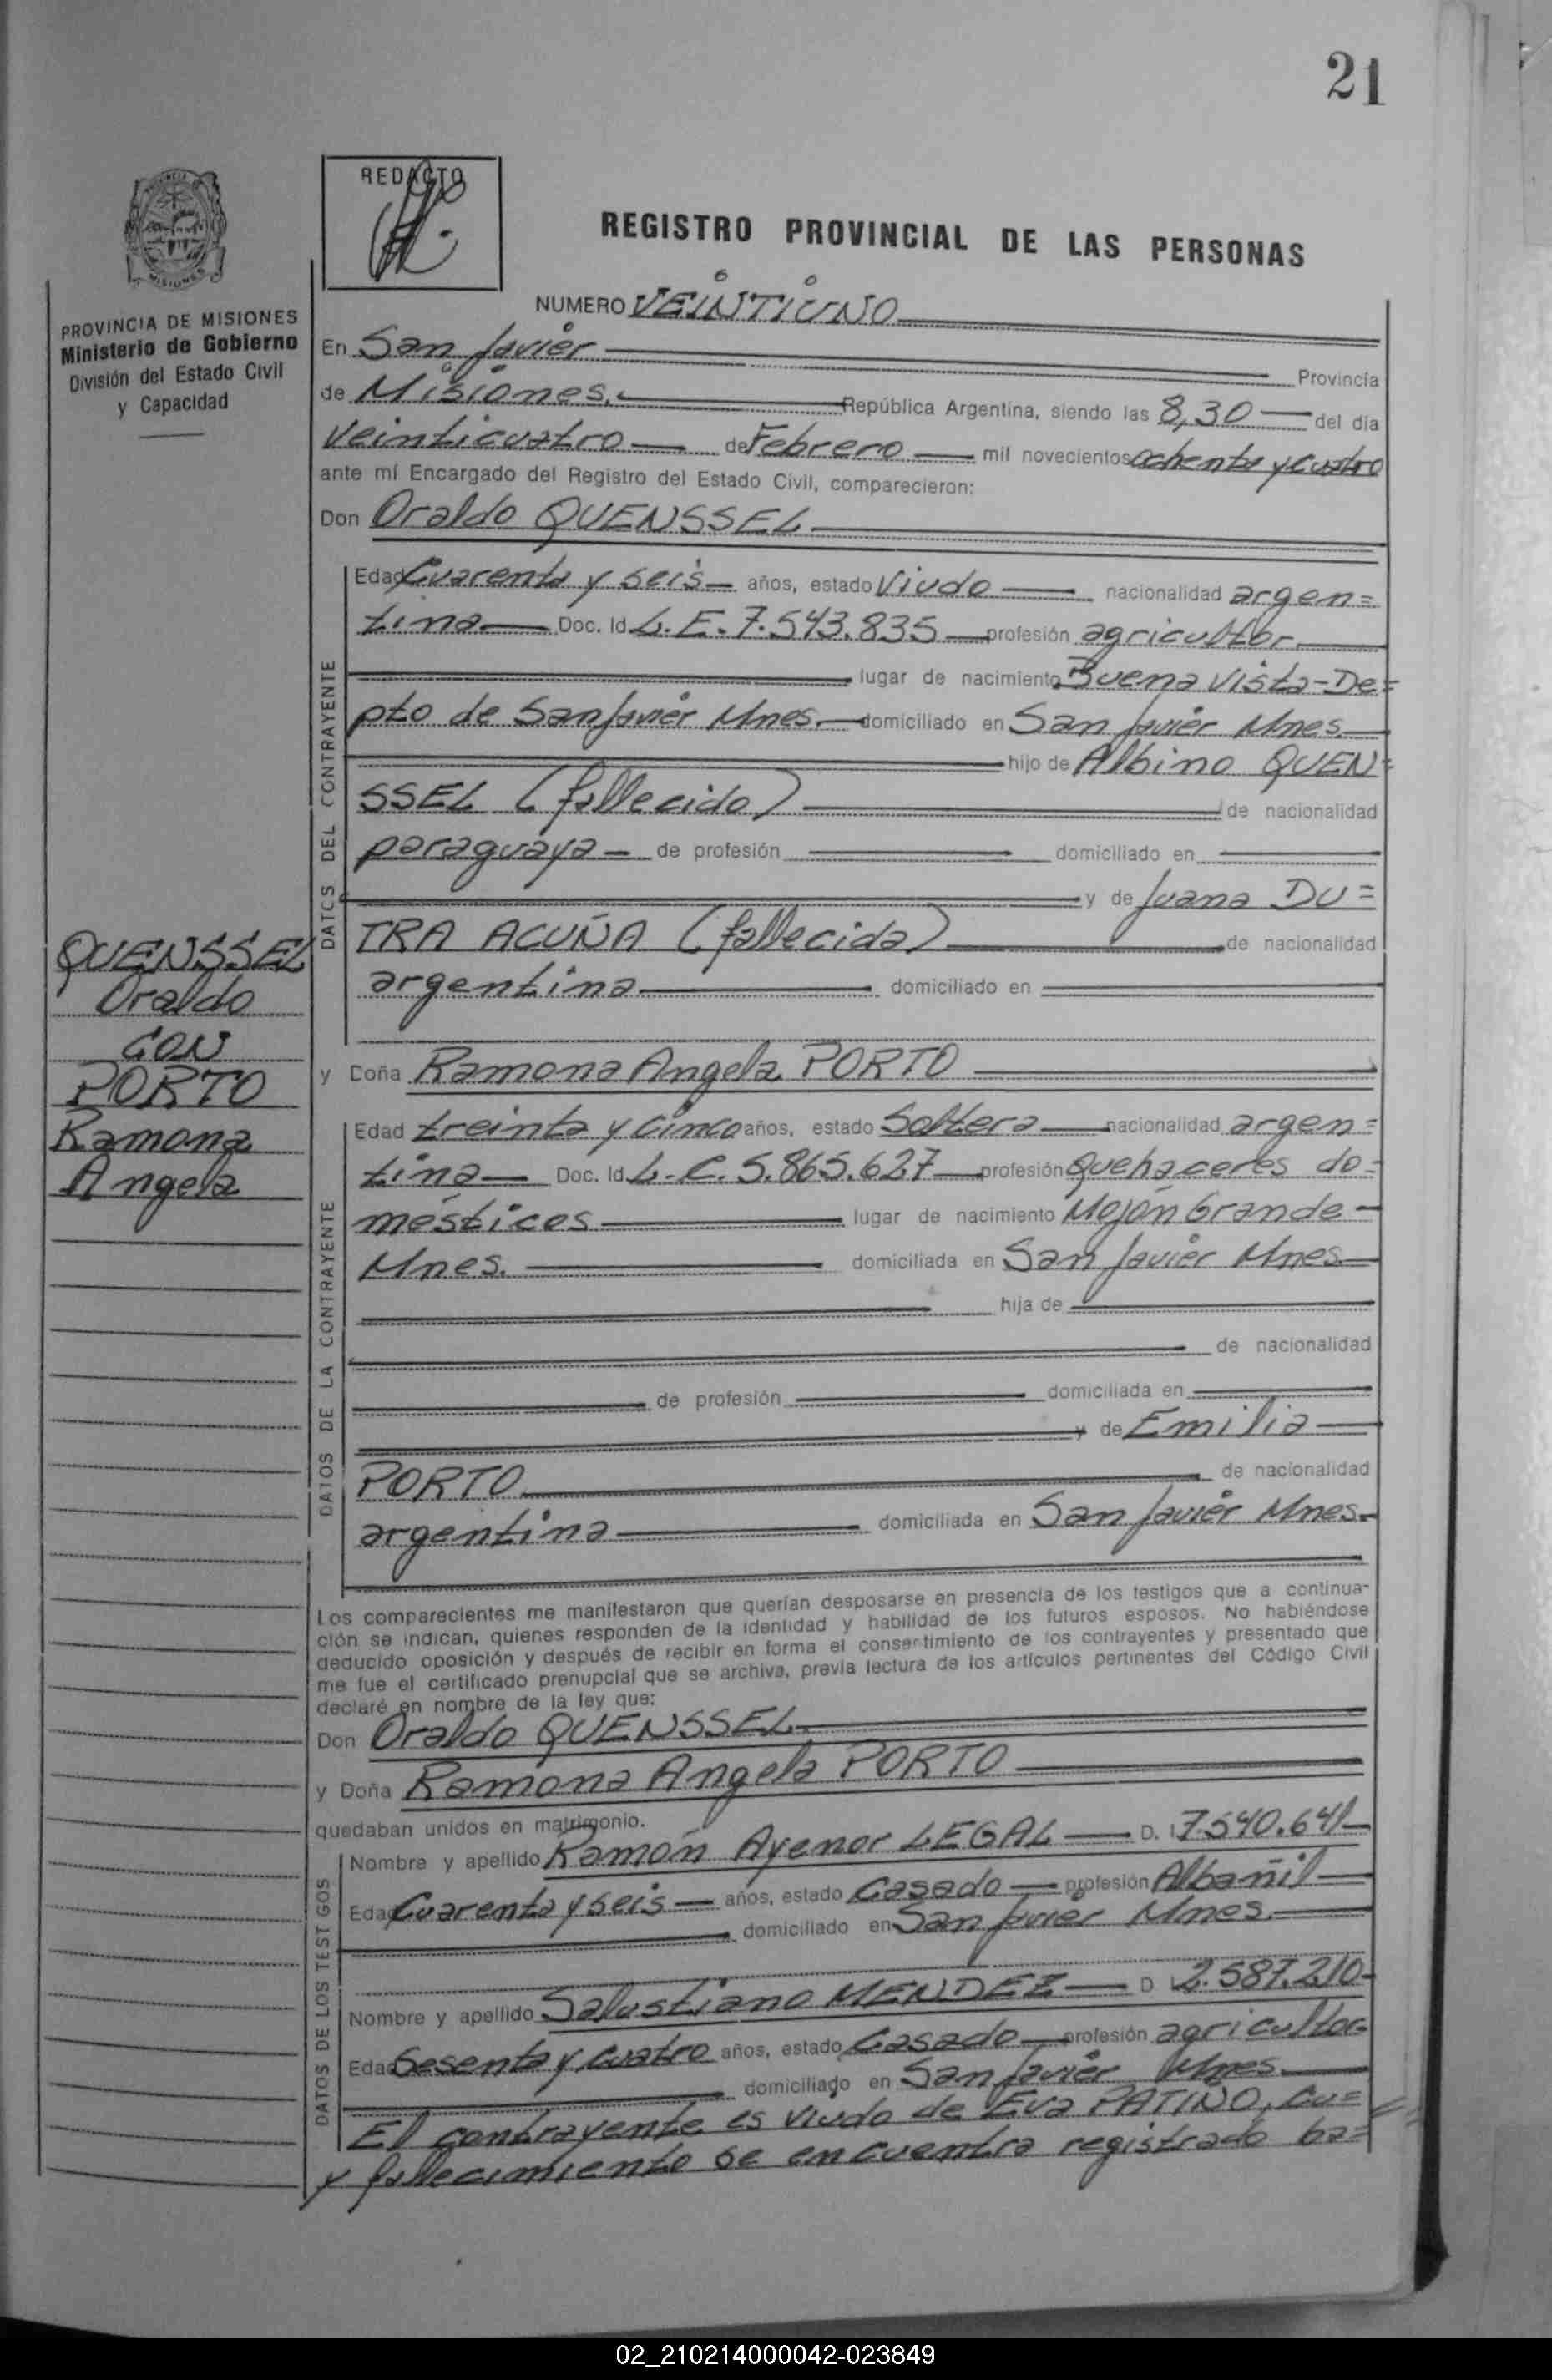 21
REDACTO
REGISTRO PROVINCIAL DE LAS PERSONAS
PROVINCIA DE MISIONES
Ministerio de Gobierno
División del Estado Civil
y Capacidad
NUMERO VEINTIUNO
En San Javier
Provincia
de Misiones. República Argentina, siendo las 8,30 del día
veinticuatro de Febrero mil novecientos ochenta y cuatro
ante mí Encargado del Registro del Estado Civil, comparecieron:
Don Oraldo QUENSSEL
DATOS DEL CONTRAYENTE
Edad Cuarenta y seis años, estado Viudo nacionalidad argen=
tina Doc. Id. L.E. 7.543.835 profesión agricultor
lugar de nacimiento Buena Vista-De=
pto de San Javier Mnes. domiciliado en San Javier Mnes.
hijo de Albino QUEN=
SSEL (fallecido) de nacionalidad
paraguaya de profesión domiciliado en
y de Juana DU=
TRA ACUÑA (fallecida) de nacionalidad
argentina domiciliado en
QUENSSEL
Oraldo
CON
PORTO
Ramona
Angela
y Doña Ramona Angela PORTO
DATOS DE LA CONTRAYENTE
Edad treinta y cinco años, estado Soltera nacionalidad argen=
tina Doc. Id. L.C. 5.865.627 profesión quehaceres do=
mésticos lugar de nacimiento Mojón Grande -
Mnes. domiciliada en San Javier Mnes.
hija de
de nacionalidad
de profesión domiciliada en
y de Emilia
PORTO de nacionalidad
argentina domiciliada en San Javier Mnes.
Los comparecientes me manifestaron que querían desposarse en presencia de los testigos que a continua-
ción se indican, quienes responden de la identidad y habilidad de los futuros esposos. No habiéndose
deducido oposición y después de recibir en forma el consentimiento de los contrayentes y presentado que
me fue el certificado prenupcial que se archiva, previa lectura de los artículos pertinentes del Código Civil
declaré en nombre de la ley que:
Don Oraldo QUENSSEL
y Doña Ramona Angela PORTO
quedaban unidos en matrimonio.
DATOS DE LOS TESTIGOS
Nombre y apellido Ramón Ayenor LEGAL D. I. 7.540.641
Edad Cuarenta y seis años, estado Casado profesión Albañil
domiciliado en San Javier Mnes.
Nombre y apellido Salustiano MENDEZ D. I. 2.587.210
Edad Sesenta y cuatro años, estado Casado profesión agricultor
domiciliado en San Javier Mnes
El contrayente es viudo de Eva PATINO, cu=
y fallecimiento se encuentra registrado ba=
02_210214000042-023849